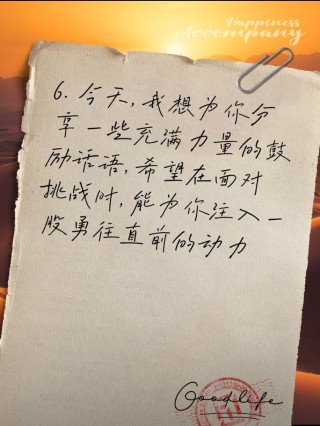 Happiness
Accompany
6. 今天, 我想为你分
享一些充满力量的鼓
励话语, 希望在面对
挑战时, 能为你注入一
股勇往直前的动力
Goodlife